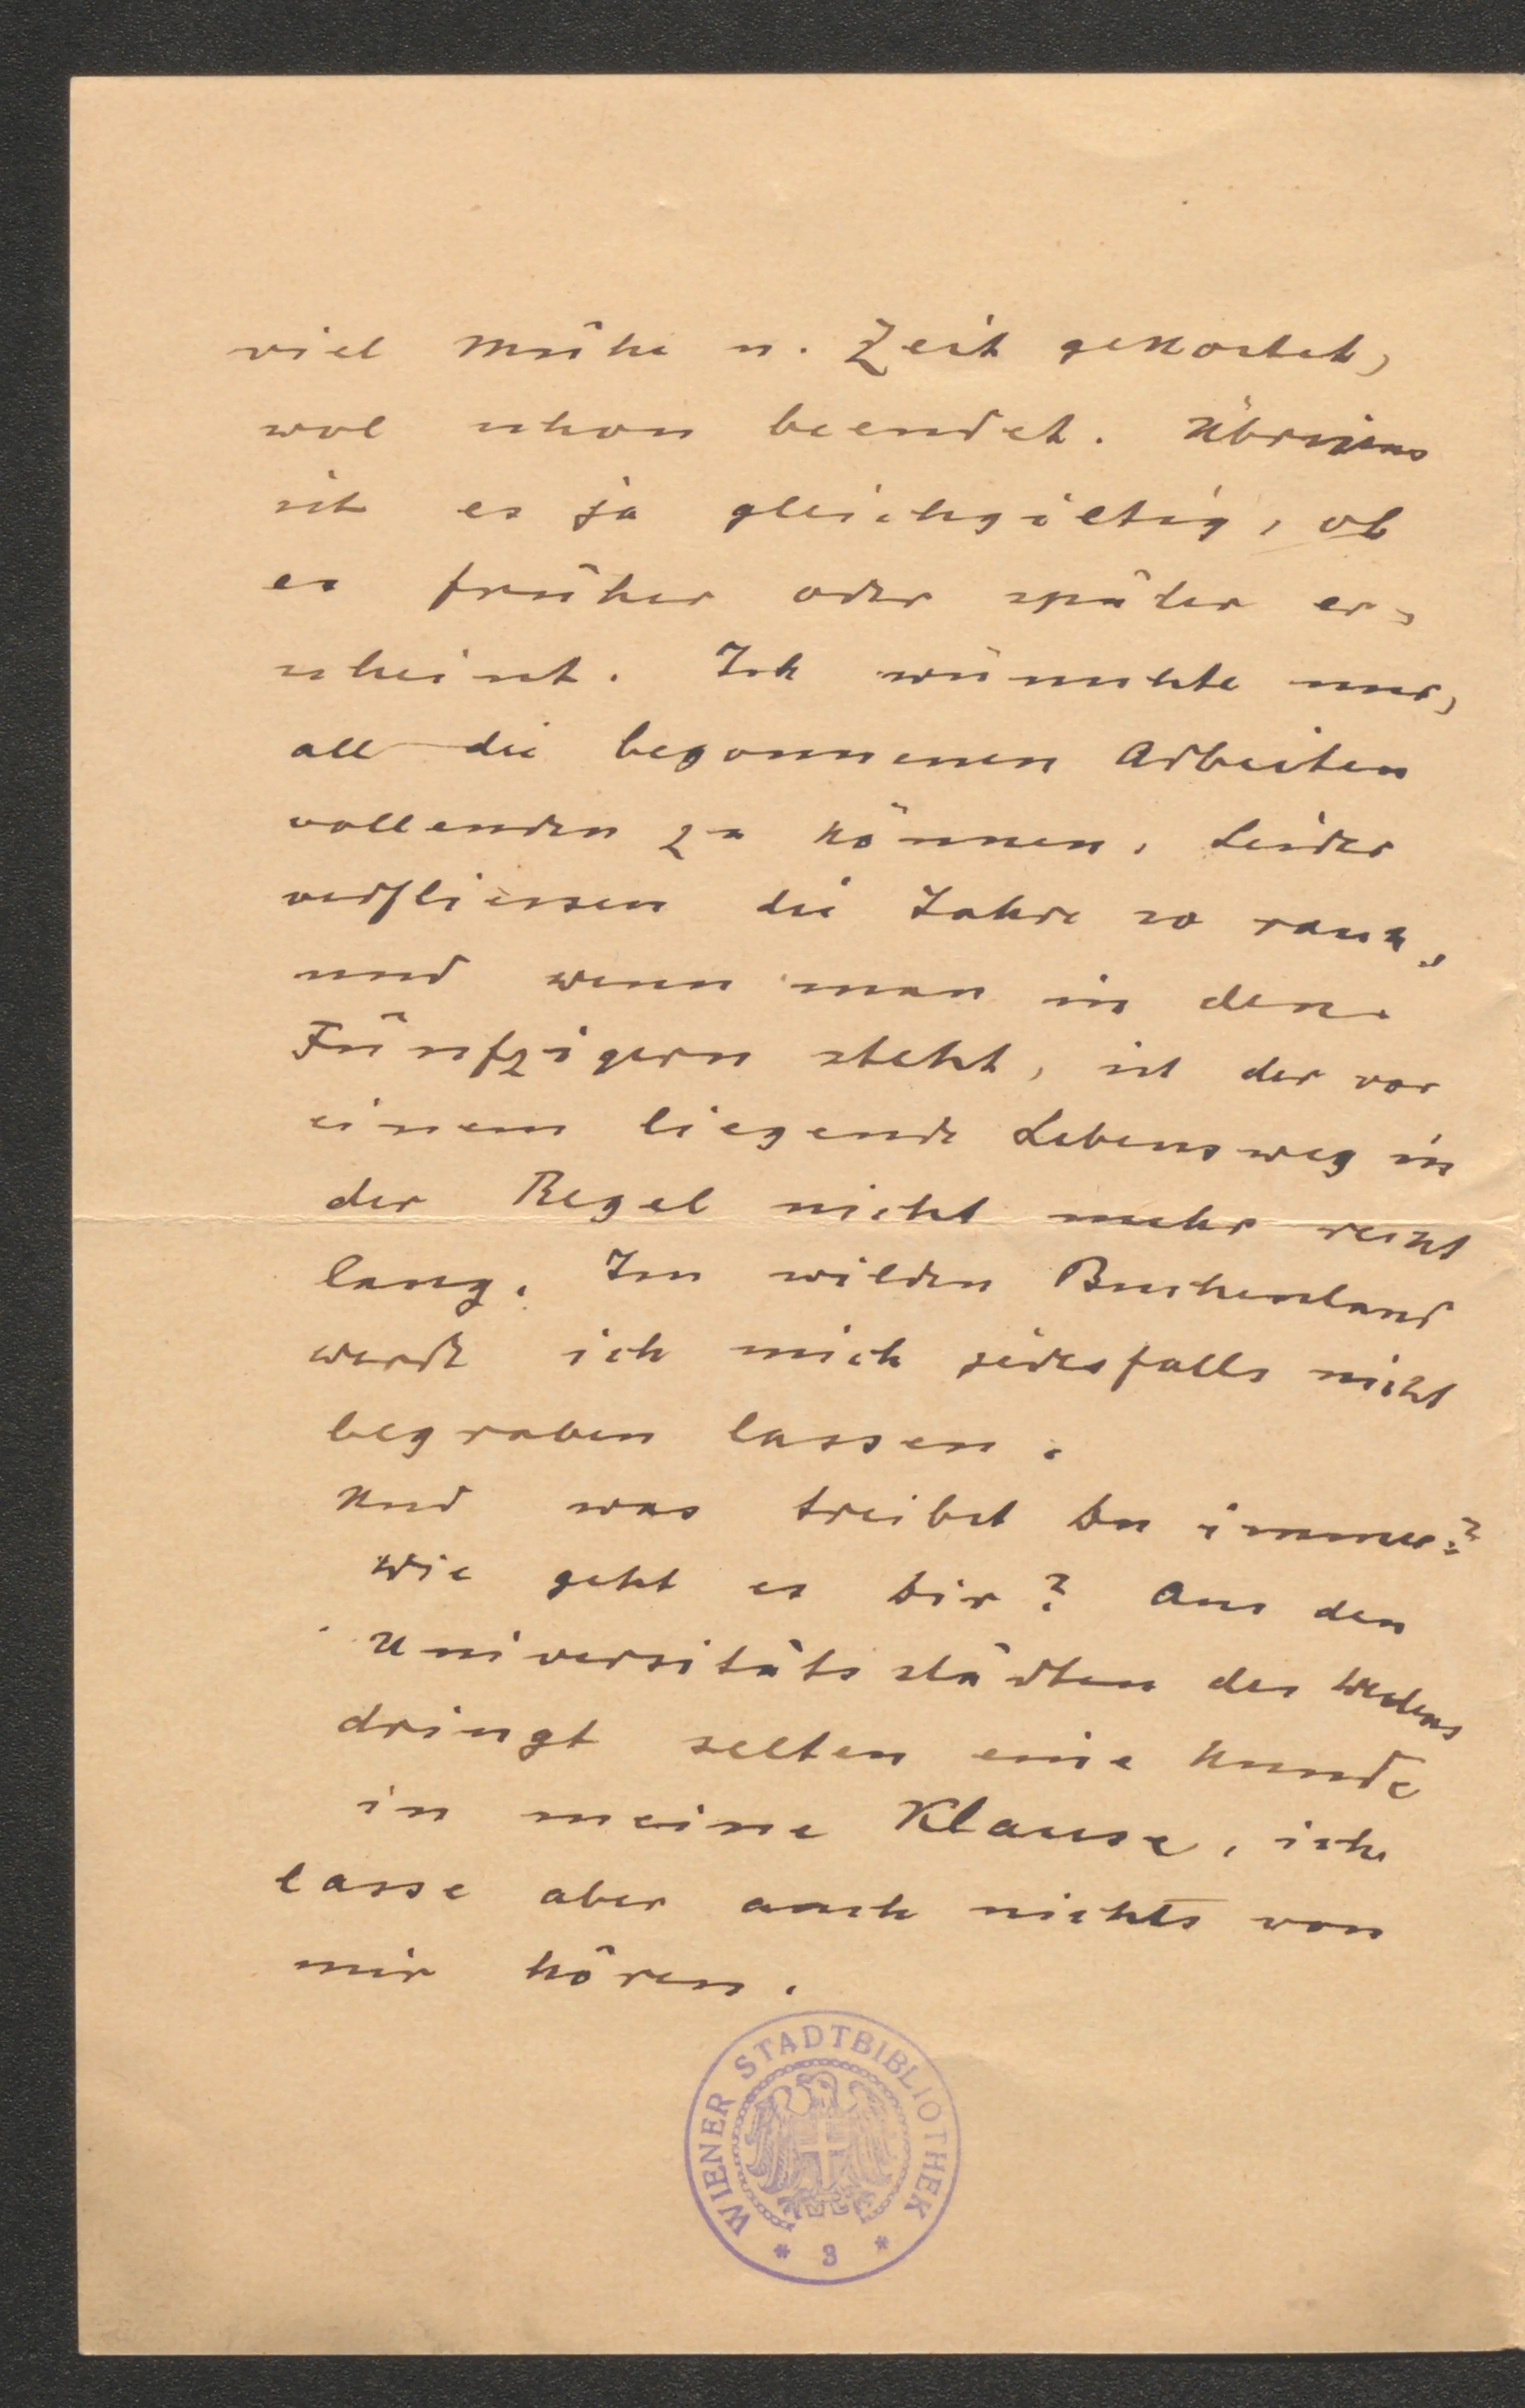 viel Mühe u. Zeit gekostet,
wol schon beendet. Übrigens
ist es ja gleichgiltig, ob
es früher oder später er-
scheint. Ich wünschte nur,
all die begonnenen Arbeiten
vollenden zu können. Leider
verfliessen die Jahre so rasch,
und wenn man in den
Fünfzigern steht, ist der vor
einem liegende Lebensweg in
der Regel nicht mehr recht
lang. Im wilden Buchenland
werde ich mich jedesfalls nicht
begraben lassen.
Und was treibst Du immer?
Wie geht es Dir? Aus den
Universitätsstädten des Westens
dringt selten eine Kunde
in meine Klause, ich
lasse aber auch nichts von
mir hören.
WIENER STADTBIBLIOTHEK
* 3 *